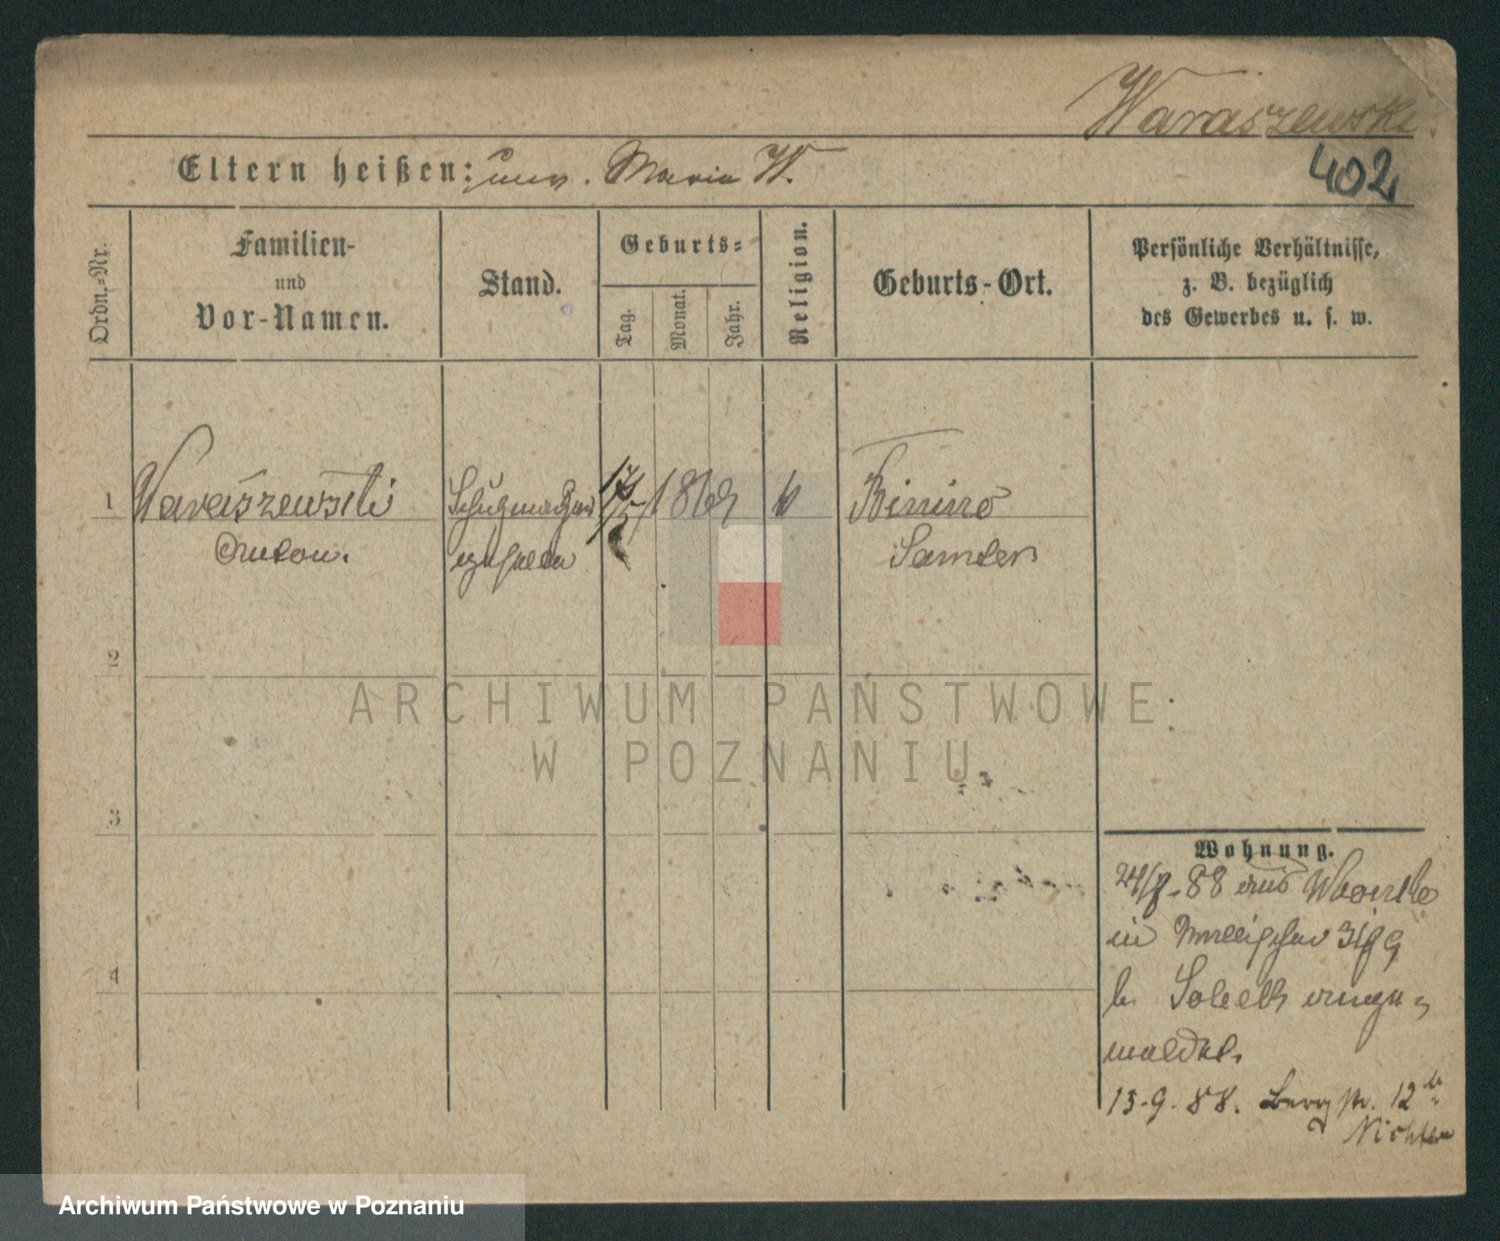 Waraszewski.
Eltern heißen: unv. Maria W.
402
Ordn.-Nr.
Familien-
und
Vor-Namen.
Stand.
Geburts-
Tag.
Monat.
Jahr.
Religion.
Geburts-Ort.
Persönliche Verhältnisse,
z. B. bezüglich
des Gewerbes u. s. w.
1 Waraszewski Schuhmacher 17/5 1869 k Binino
Anton. geselle Samter
2
ARCHIWUM PAŃSTWOWE
W POZNANIU
3
Wohnung.
24/8. 88 aus Wronke
in
4
b. angen
meldet.
13-9-88. Bergstr. 12
Archiwum Państwowe w Poznaniu